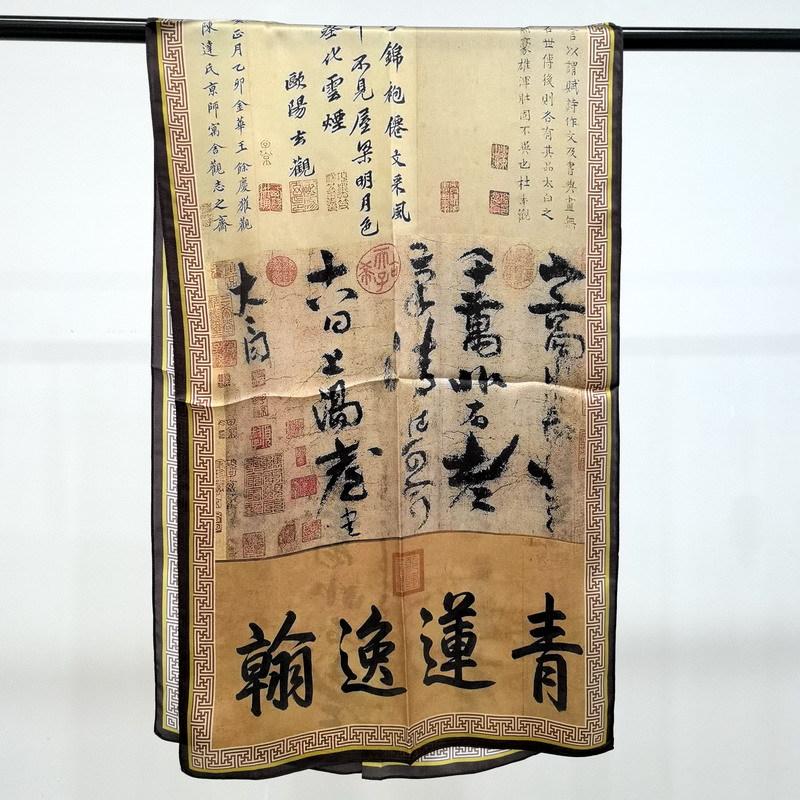 以謂賦詩作文及書與畫無
名世傳後則各有其品太白之
豪雄渾壯固不異也杜本觀
錦袍僊文采風
不見屋梁明月色
化雲煙
歐陽玄觀
正月乙卯金華王餘慶獲觀
陳達氏京師寓舍觀志之齋
山高水長物象
千萬非有老
筆清壯可窮
十八日上陽臺書
太白
青蓮逸翰